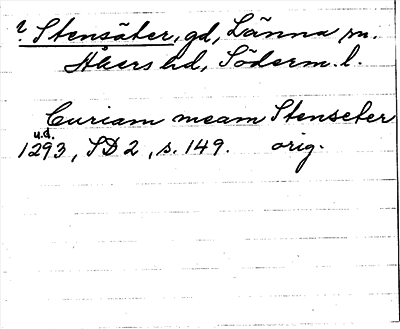 ? Stensäter, gd, Länna sn.
Åkers hd, Söderm. l.
Curiam meam Stenseter
u.d.
1293, SD 2, s. 149. orig.